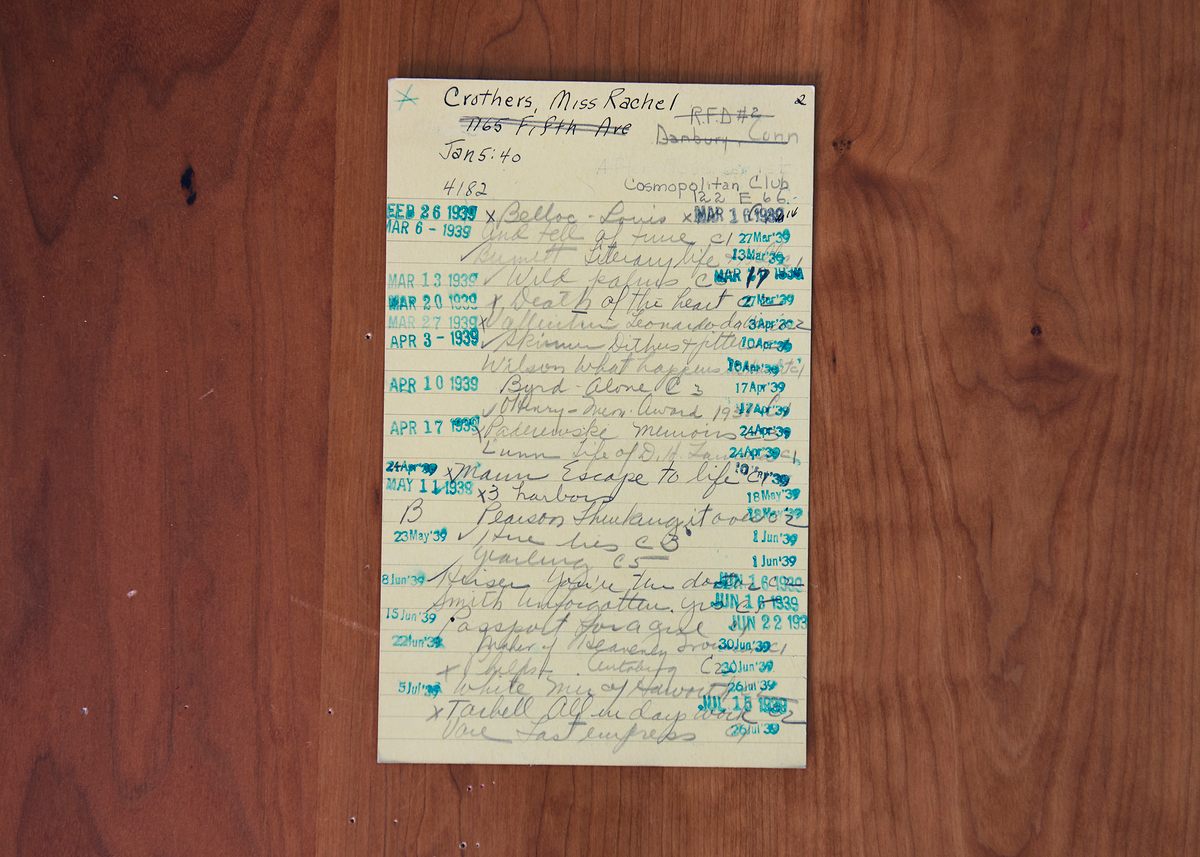 Crothers, Miss Rachel 2
1165 Fifth Ave R.F.D #2
Danbury, Conn
Jan 5:40
4182 Cosmopolitan Club
122 E 66
FEB 26 1939 x Belloc - Louis x MAR 16 1939
MAR 6 - 1939 And tell of time c1 27 Mar '39
Burnett Literary life 13 Mar '39
MAR 13 1939 Wild palms c MAR 17 1939
MAR 20 1939 x Death of the heart c 27 Mar '39
MAR 27 1939 x Vallentin Leonardo da 3 Apr '39
APR 3 - 1939 Skinner Dithers + jitters 10 Apr '39
Wilson What happens 10 Apr '39
APR 10 1939 Byrd - Alone C 3 17 Apr '39
O'Henry - Mem. Award 193 17 Apr '39
APR 17 1939 x Paderewski Memoirs c 24 Apr '39
Life of D. H. 24 Apr '39
24 Apr '39 x Mann Escape to life c1
MAY 11 1939 x 3 harbors 18 May '39
B Pearson Thinking it over c2 18 May '39
23 May '39 Here lies c B 1 Jun '39
Yearling c5 1 Jun '39
8 Jun '39 Heiser You're the doctor c2 JUN 16 1939
Smith Unforgotten yrs c JUN 16 1939
15 Jun '39 Passport for a girl JUN 22 193
22 Jun '39 Maker of Heavenly c1 30 Jun '39
x Phelps Autobiog C2 30 Jun '39
5 Jul '39 White Mer of Haworth 26 Jul '39
x Tarbell All in days work c2 JUL 15 1939
Vare Last empress c1 26 Jul '39